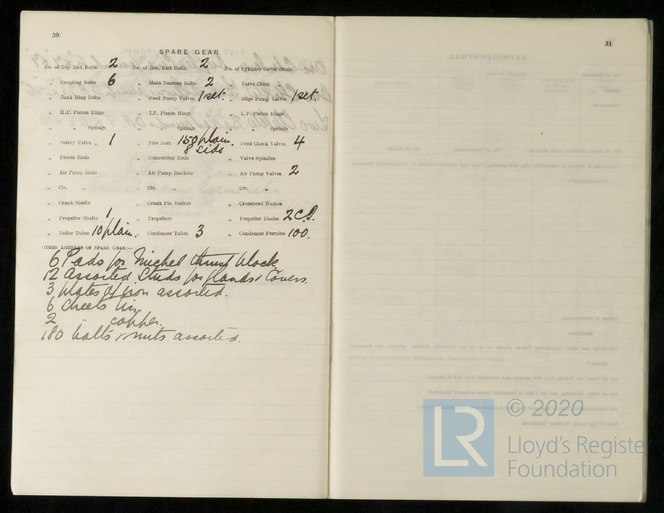 30
SPARE GEAR
No. of Top End Bolts 2 No. of Bot. End Bolts 2 No. of Cylinder Cover Studs
" Coupling Bolts 6 " Main Bearing Bolts 2 " Valve Chest "
" Junk Ring Bolts " Feed Pump Valves 1 set. " Bilge Pump Valves 1 set.
" H.P. Piston Rings " I.P. Piston Rings " L.P. Piston Rings
" " Springs " " Springs " " Springs
" Safety Valve " 1 " Fire Bars 150 plain. 8 side " Feed Check Valves 4
" Piston Rods " Connecting Rods " Valve Spindles
" Air Pump Rods " Air Pump Buckets " Air Pump Valves 2
" Cir. " " Cir. " " Cir. "
" Crank Shafts " Crank Pin Shafts " Crosshead Bushes
" Propeller Shafts 1 " Propellers " Propeller Blades 2 C.I.
" Boiler Tubes 10 plain. " Condenser Tubes 3 " Condenser Ferrules 100.
OTHER ARTICLES OF SPARE GEAR:—
6 Pads for Michel thrust block
12 Assorted Studs for glands & Covers.
3 plates of iron assorted.
6 sheets tin
2 " copper.
180 bolts & nuts assorted.
31
LR
© 2020
Lloyd's Register
Foundation